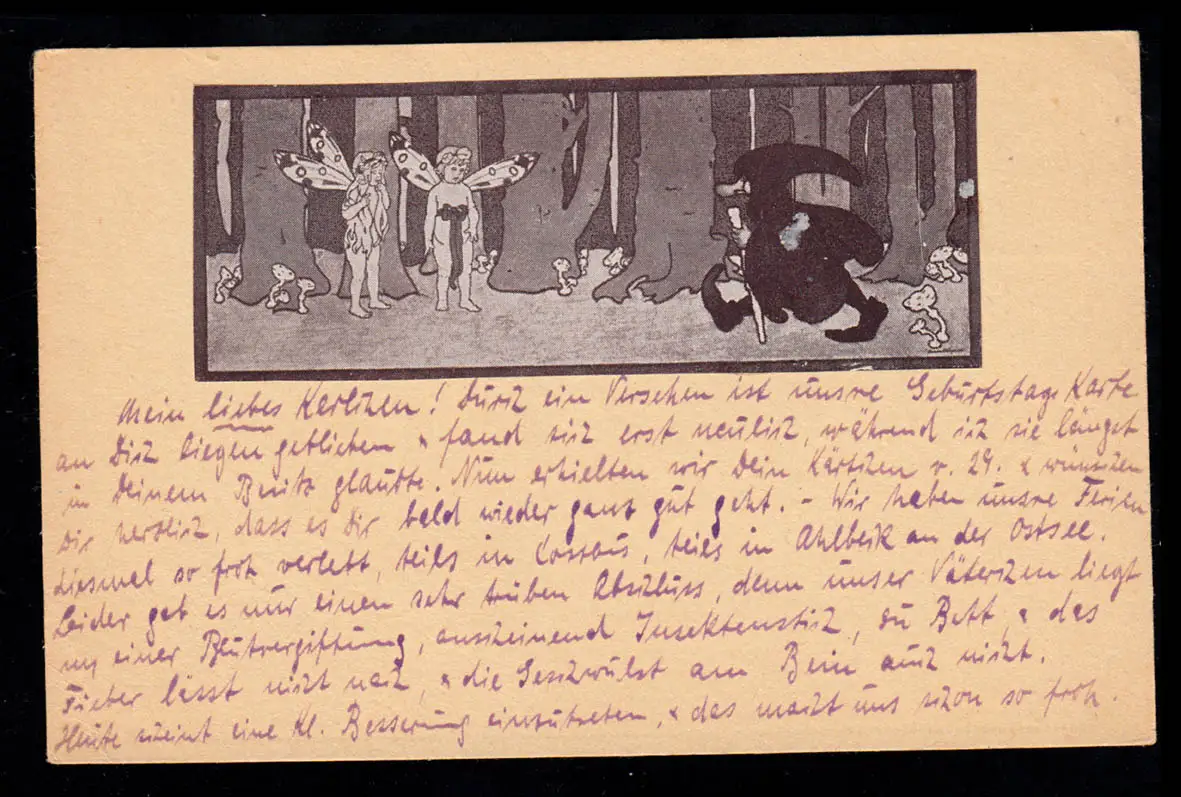 Mein liebes Karlchen! Durch ein Versehen ist unsre Geburtstags Karte
an Dich liegen geblieben & fand sich erst neulich, während ich sie längst
in Deinem Besitz glaubte. Nun erhielten wir Dein Kärtchen v. 29. & wünschen
Dir herzlich, dass es Dir bald wieder ganz gut geht. – Wir haben unsre Ferien
diesmal so froh verlebt, teils in, teils in Ahlbeck an der Ostsee.
Leider gab es nur einen sehr trüben Abschluss, denn unser Väterchen liegt
einer Blutvergiftung, anscheinend Insektenstich, zu Bett, & das
Fieber lässt nicht nach, & die Geschwulst am Bein auch nicht.
Heute scheint eine kl. Besserung einzutreten, & das macht uns schon so froh.